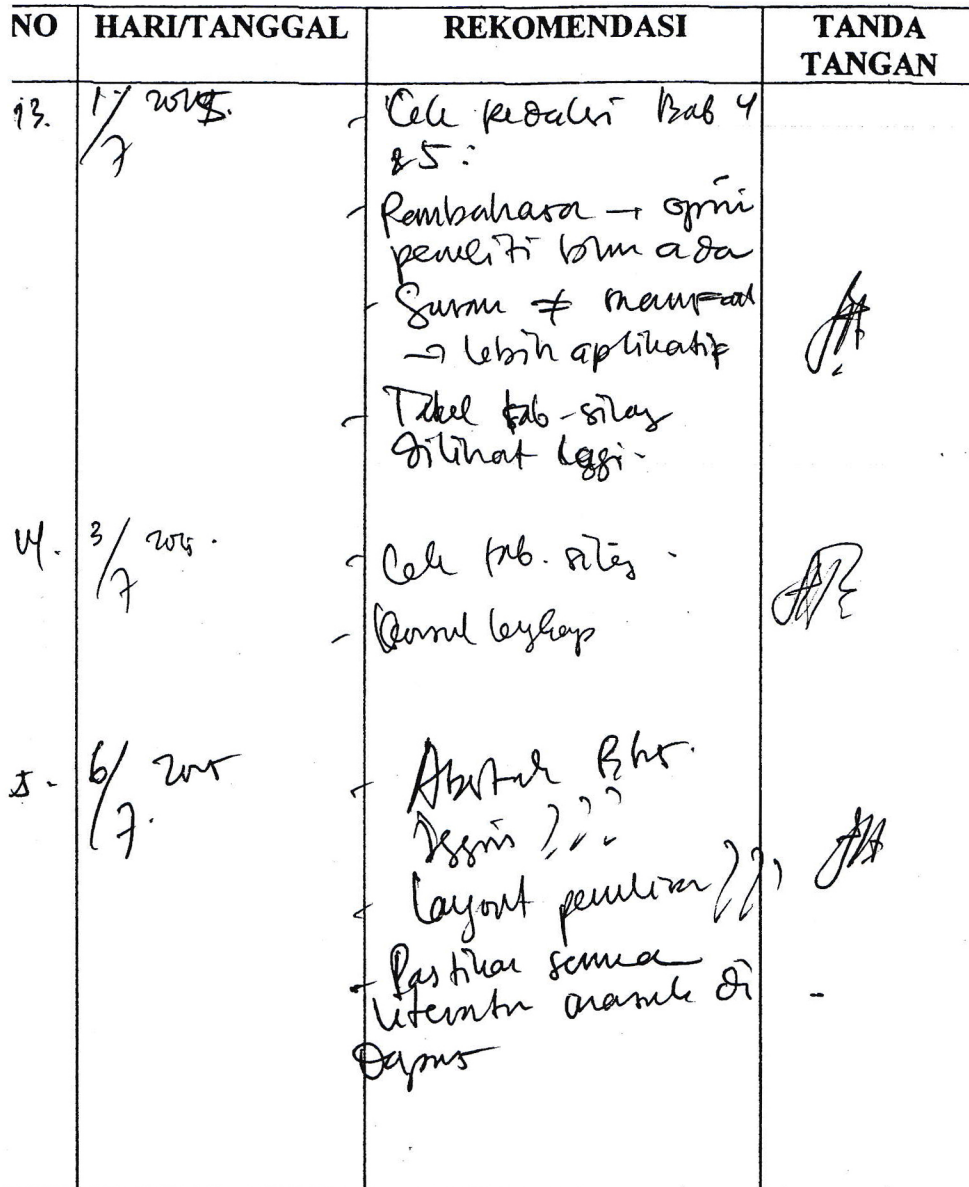 NO HARI/TANGGAL REKOMENDASI TANDA TANGAN
13. 1/7 2015.
- Cek redaksi Bab 4
& 5 :
- Pembahasan → opini
peneliti blm ada
- Saran ≠ manfaat
→ lebih aplikatif
- Tabel tab-silang
dilihat lagi -
14. 3/7 2015.
- Cek tab. silang -
- Konsul lengkap
6/7. 2015
- Abstrak Bhs.
Inggris ???
- Layout penulisan ???
- Pastikan semua
literatur masuk di
Dapus